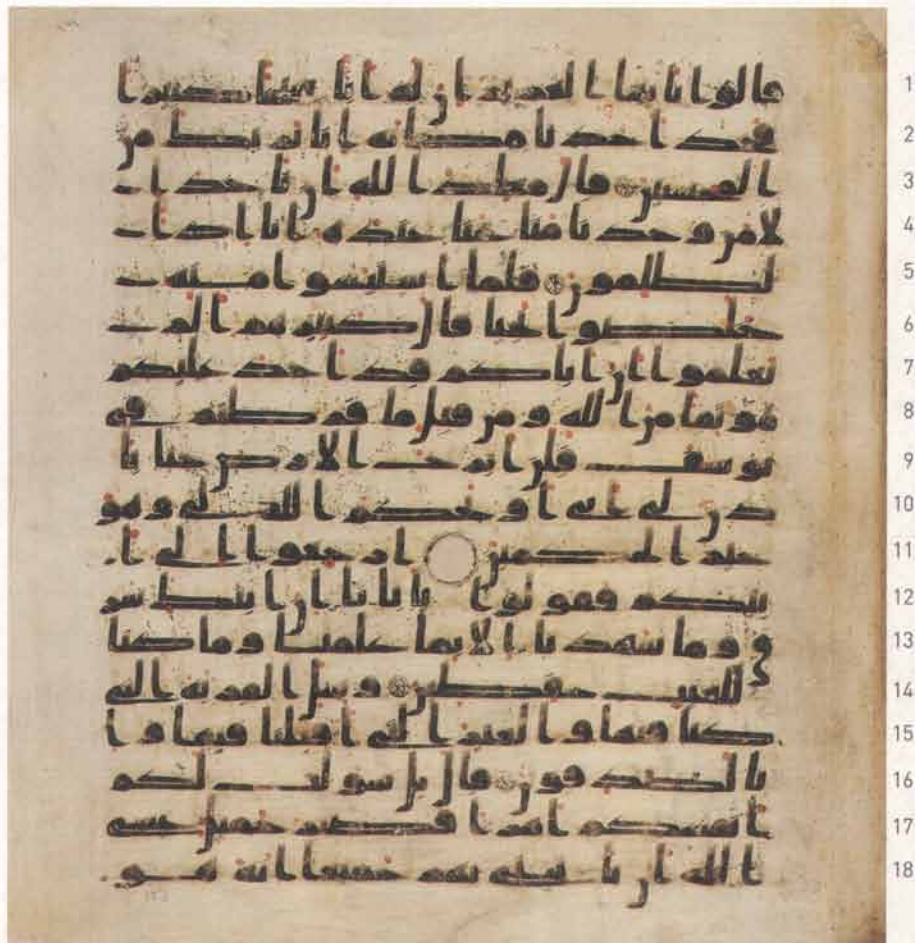 1 قالوا يايها العزيز ان له ابا شيخا كبيرا
2 فخذ احدنا مكانه انا نريك من
3 المحسنين قال معذ الله ان ناخذ ا
4 لا من وجدنا متعنا عنده انا اذا
5 لظلمون فلما استيسوا منه
6 خلصوا نجيا قال كبيرهم الم
7 تعلموا ان اباكم قد اخذ عليكم
8 موثقا من الله ومن قبل ما فرطتم في
9 يوسف فلن ابرح الارض حتى يا
10 ذن لي ابي او يحكم الله لي وهو
11 خير الحكمين ارجعوا الى ا
12 بيكم فقولوا يابانا ان ابنك سر
13 ق وما شهدنا الا بما علمنا وما كنا
14 للغيب حفظين وسل القرية التي
15 كنا فيها والعير التي اقبلنا فيها وا
16 نا لصدقون قال بل سولت لكم
17 انفسكم امرا فصبر جميل عسى
18 الله ان ياتيني بهم جميعا انه هو